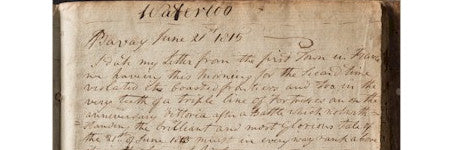 Waterloo
Bavay June 21st 1815
I date my Letter from the first Town in France
we having this morning for the second time
violated the boasted frontiers and too in the
very teeth of a triple line of Fortresses on on the
anniversary Vittoria after a Battle which notwith-
standing the brilliant and most glorious tale of
the 21st of June 1813 must in every way rank above